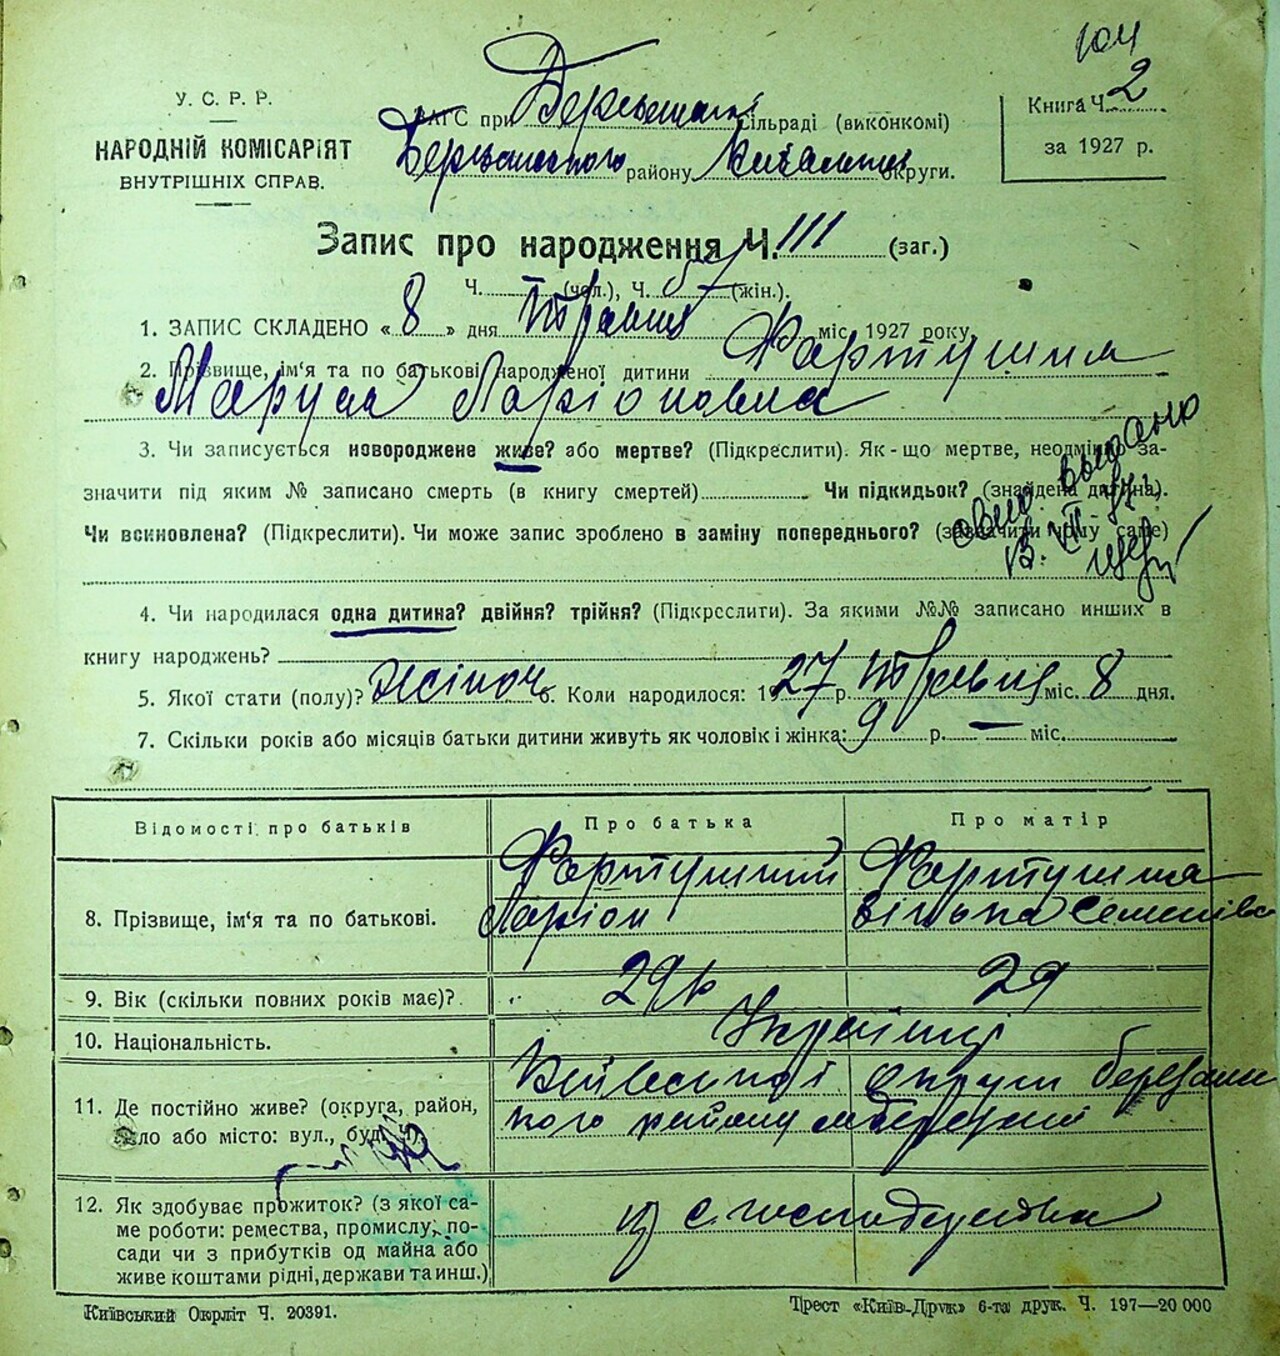 104
У. С. Р. Р.
НАРОДНІЙ КОМІСАРІЯТ
ВНУТРІШНІХ СПРАВ.
ЗАГС при сільраді (виконкомі)
Березанського району Київської округи.
Книга Ч. 2
за 1927 р.
Запис про народження Ч. 111 (заг.)
Ч. (чол.), Ч. 57 (жін.).
1. ЗАПИС СКЛАДЕНО « 8 » дня травня міс. 1927 року
2. Прізвище, ім'я та по батькові народженої дитини Фартушна
Маруся Ларіоновна
3. Чи записується новороджене живе? або мертве? (Підкреслити). Як-що мертве, неодмінно за-
значити під яким № записано смерть (в книгу смертей) Чи підкидьок? (знайдена дитина).
Чи всиновлена? (Підкреслити). Чи може запис зроблено в заміну попереднього? (зазначити чому саме)
4. Чи народилася одна дитина? двійня? трійня? (Підкреслити). За якими №№ записано инших в
книгу народжень?
5. Якої стати (полу)? жіноч 6. Коли народилося: 1927 р. травня міс. 8 дня.
7. Скільки років або місяців батьки дитини живуть як чоловік і жінка: 9 р. — міс.
Відомості про батьків Про батька Про матір
8. Прізвище, ім'я та по батькові. Фартушний Ларіон Фартушна Семенівна
9. Вік (скільки повних років має)? 29 р 29
10. Національність. Українці
11. Де постійно живе? (округа, район, Київської округи Березансь-
село або місто: вул., буд. Ч.) кого району
12. Як здобуває прожиток? (з якої са-
ме роботи: ремества, промислу, по-
сади чи з прибутків од майна або
живе коштами рідні, держави та инш.) з с. господарства
Київський Окрліт Ч. 20391.
Трест «Київ-Друк» 6-та друк. Ч. 197—20 000